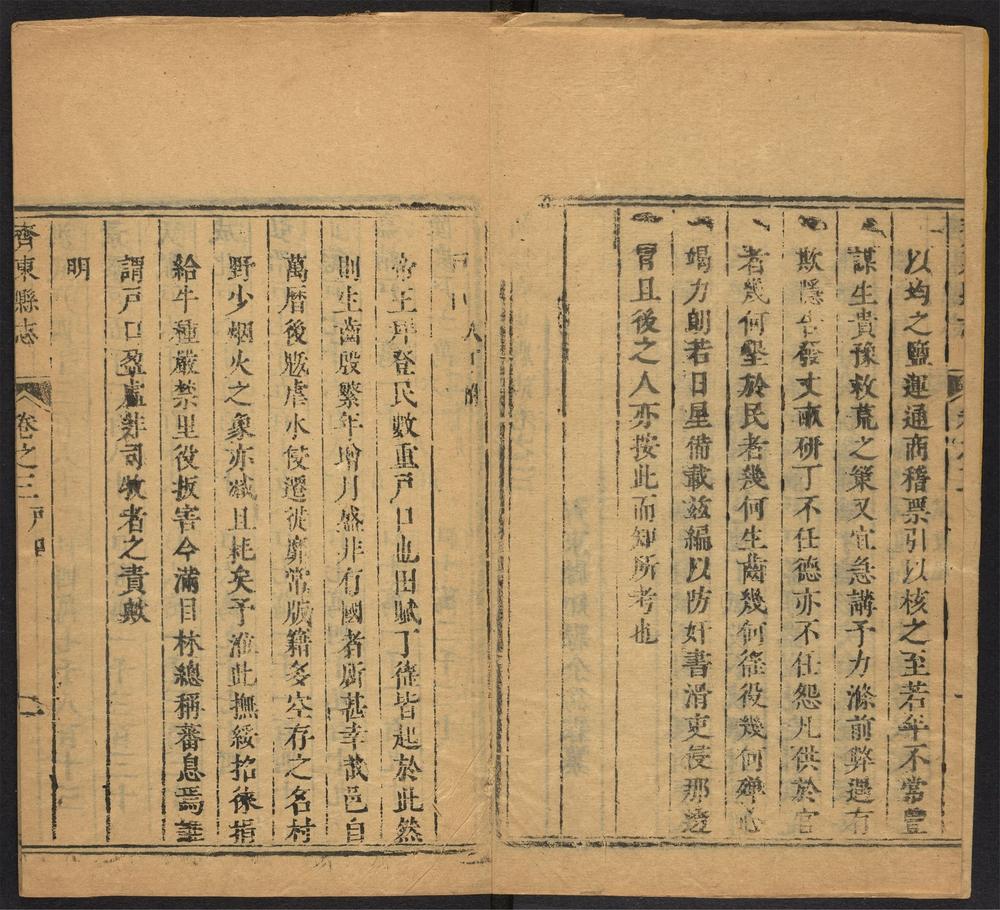 以均之鹽運通商稽票引以核之至若年不常豐
謀生貴豫救荒之策又宜急講予力滌前弊遇有
欺隱告發丈畝研丁不任德亦不任怨凡供於官
者幾何墾於民者幾何生齒幾何徭役幾何殫心
竭力朗若日星備載茲編以防奸書滑吏侵那遊
冒且後之人亦按此而知所考也
戶口 人丁附
王拜登民數重戶口也田賦丁徭皆起於此然
則生齒殷繁年增月盛非有國者所甚幸哉邑自
萬曆後寇虐水侵遷徙靡常版籍多空存之名村
野少烟火之象亦凋且耗矣予涖此撫綏招徠捐
給牛種嚴禁里役扳害今滿目林總稱蕃息焉誰
謂戶口盈虛非司牧者之責歟
明
齊東縣志 卷之三 戶口 二